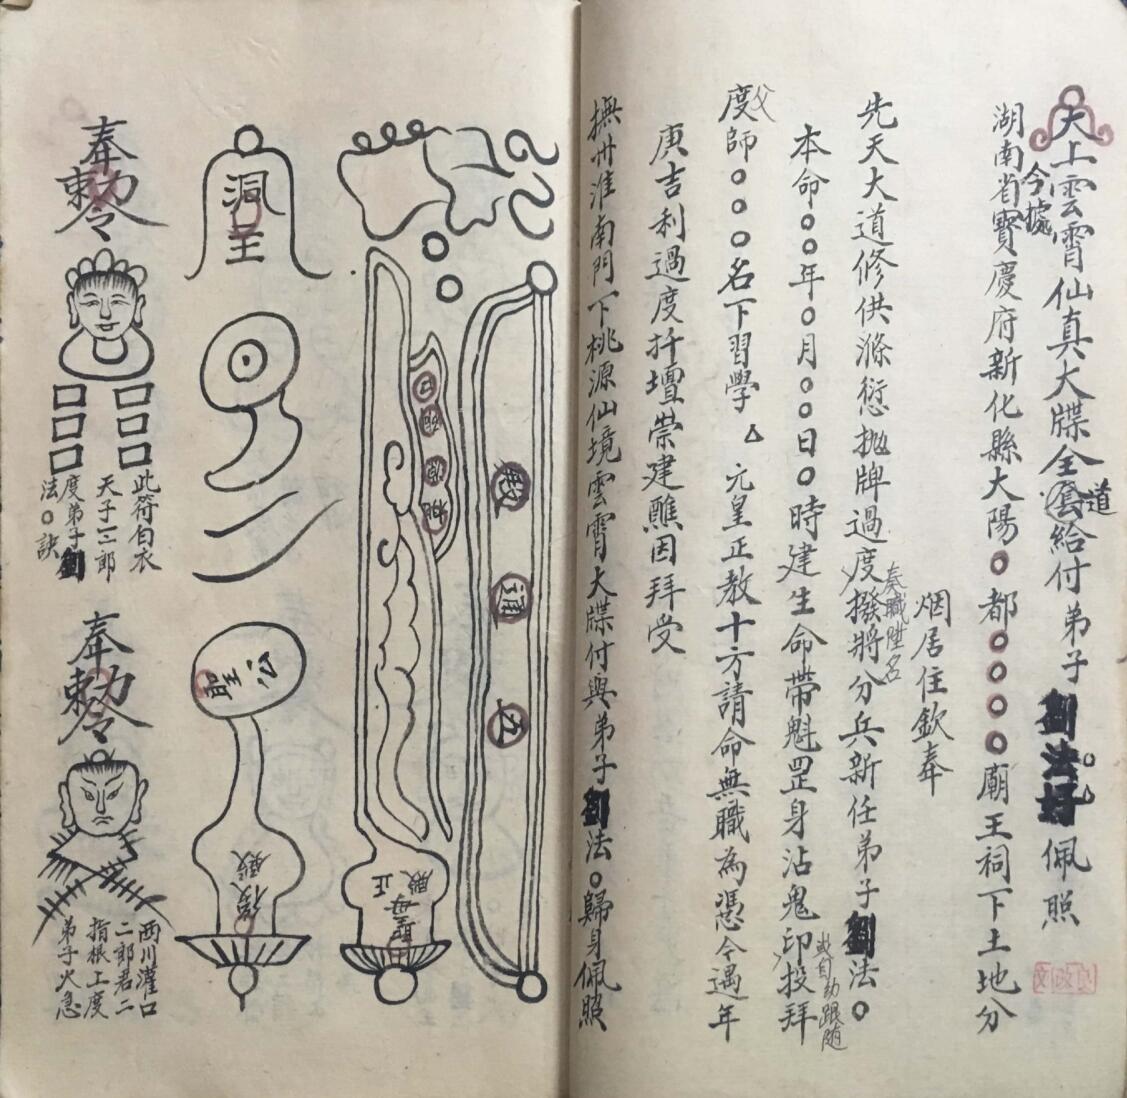 太上雲霄仙真大牒全套給付弟子劉法佩照
道
湖南省寶慶府新化縣大陽○都○○○○廟王祠下土地分
今據
烟居住欽奉
先天大道修供滌愆拋牌過度撥將分兵新任弟子劉法○
奏職陞名
本命○○年○月○○日○時建生命帶魁罡身沾鬼印投拜
自幼跟隨
度師○○○名下習學 元皇正教十方請命無職為憑今遇年
父
庚吉利過度抃壇崇建醮因拜受
撫州淮南門下桃源仙境雲霄大牒付與弟子劉法○歸身佩照
敕
通
桃
源
洞
王
公
聖
後殿
聖母正殿
奉
敕令
此符白衣
天子三郎
度弟子劉
法○訣
奉
敕令
西川灌口
二郎君二
指根上度
弟子火急